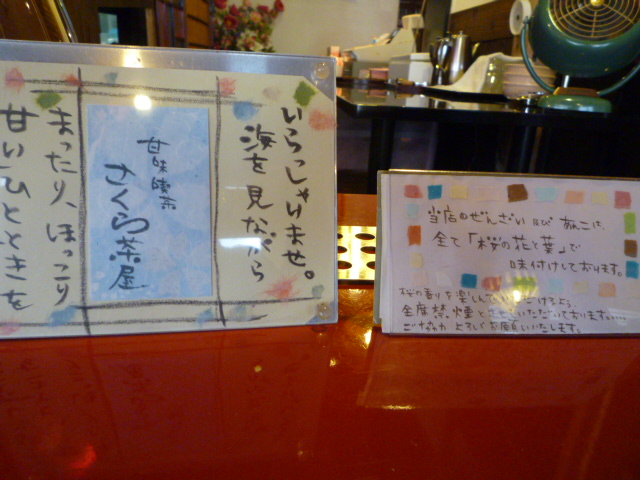 いらっしゃいませ。
海を見ながら
甘味喫茶
さくら茶屋
まったり、ほっこり
甘いひとときを
当店のぜんざい及び あんこは、
全て「桜の花と葉」で
味付けしております。
桜の香りを楽しんでいただけるよう、
全席禁煙とさせていただいております。....
ご協力 よろしくお願いいたします。